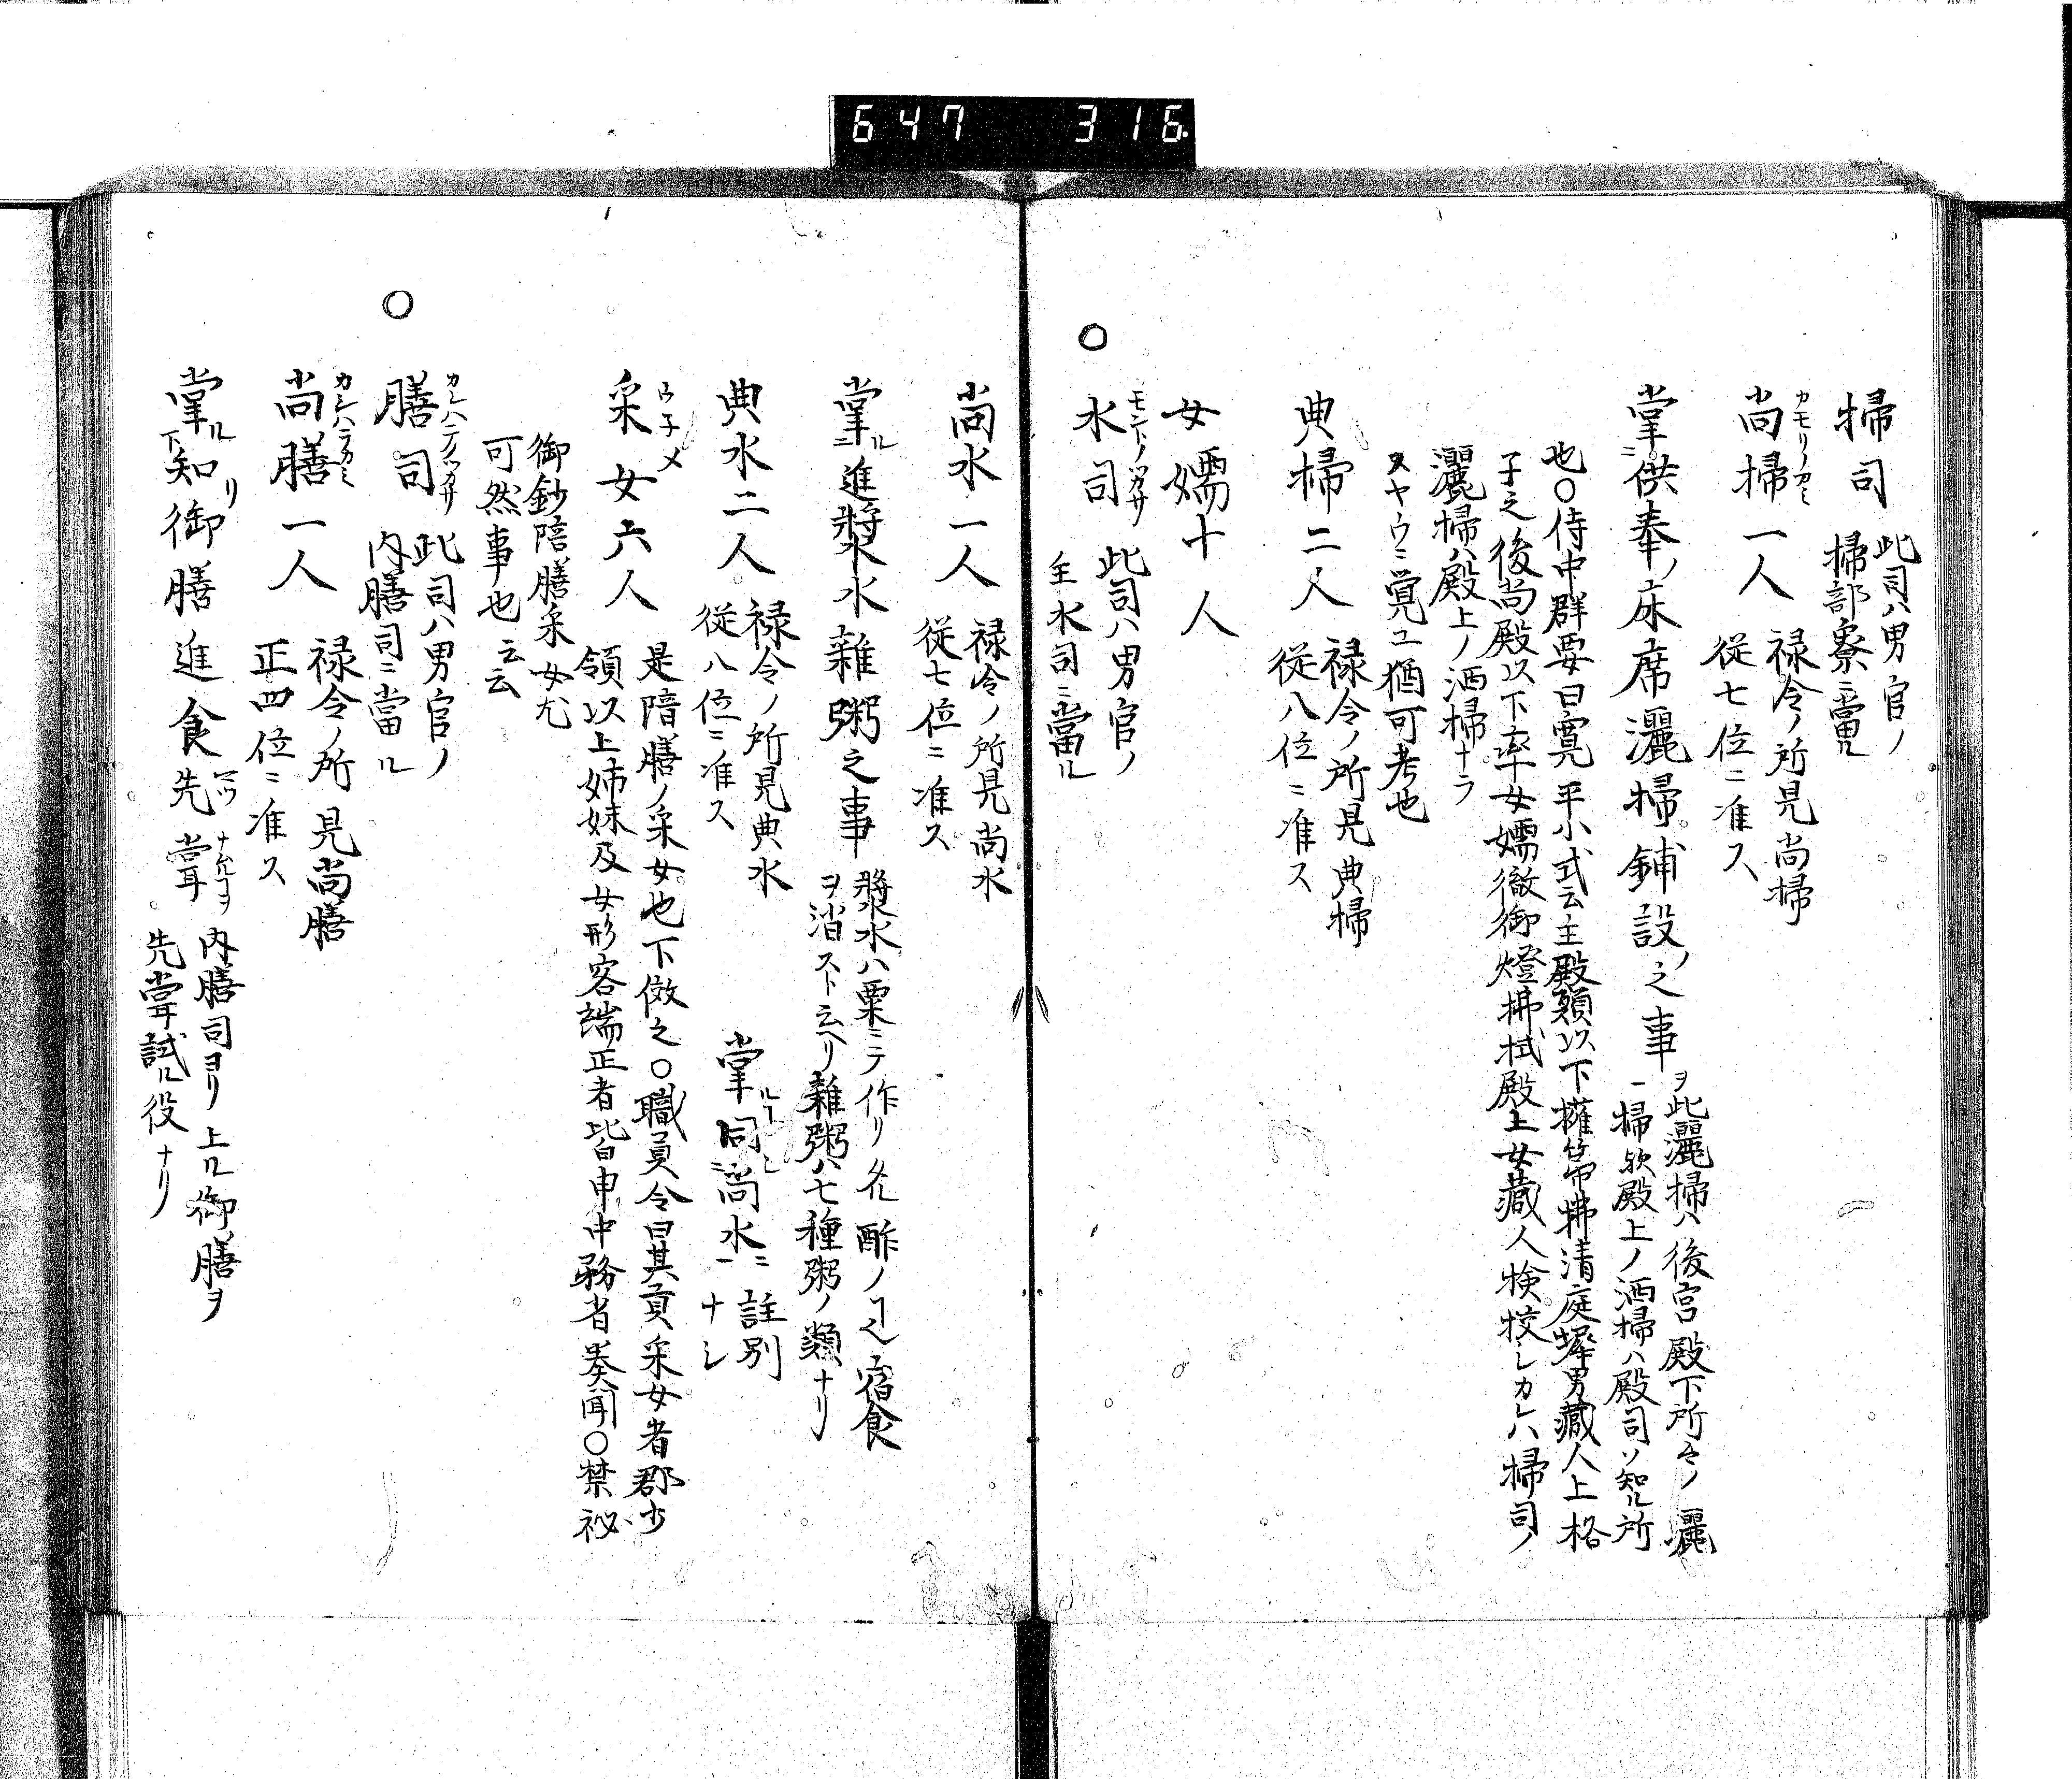 647 316
掃司 此司ハ男官ノ
掃部寮ニ當ル
尚掃一人 禄令ノ所見尚掃
従七位ニ准ス
カモリノカミ
掌供奉ノ床席灑掃鋪設ノ之事 此灑掃ハ後宮殿下所々ノ灑
掃欤殿上ノ洒掃ハ殿司ソ知ル所
也○侍中群要曰寛平小式云主殿頭以下擁箒拂清庭墀男藏人上格
子之後尚殿以下率女孺徹御燈拂拭殿上女藏人検校シカレハ掃司ノ
灑掃ハ殿上ノ洒掃ナラ
ヌヤウニ覚ユ猶可考也
典掃二人 禄令ノ所見典掃
従八位ニ准ス
女孺十人
○水司 此司ハ男官ノ
主水司ニ當ル
モントノツカサ
尚水一人 禄令ノ所見尚水
従七位ニ准ス
掌ル進漿水雜粥之事 漿水ハ粟ニテ作リタル酢ノ𪜈宿食
ヲ消スト云ヘリ雜粥ハ七種粥ノ類ナリ
典水二人 禄令ノ所見典水
従八位ニ准ス
掌ル同尚水ニ 註別
ナシ
ウネメ
采女六人 是陪膳ノ采女也下倣之○職員令曰其貢采女者郡少
領以上姉妹及女形容端正者皆申中務省奏聞○禁秘
御鈔陪膳采女尤
可然事也云云
カシハテノツカサ
○膳司 此司ハ男官ノ
内膳司ニ當ル
カシハテノカミ
尚膳一人 禄令ノ所見尚膳
正四位ニ准ス
掌ル知リ御膳進食先嘗 内膳司ヨリ上ル御膳ヲ
先嘗試ル役ナリ